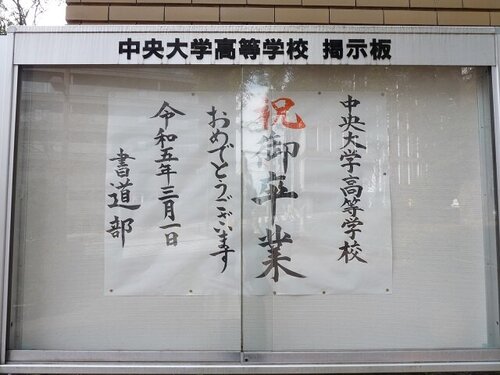 中央大学高等学校 掲示板
中央大学高等学校
祝御卒業
おめでとうございます
令和五年三月一日
書道部